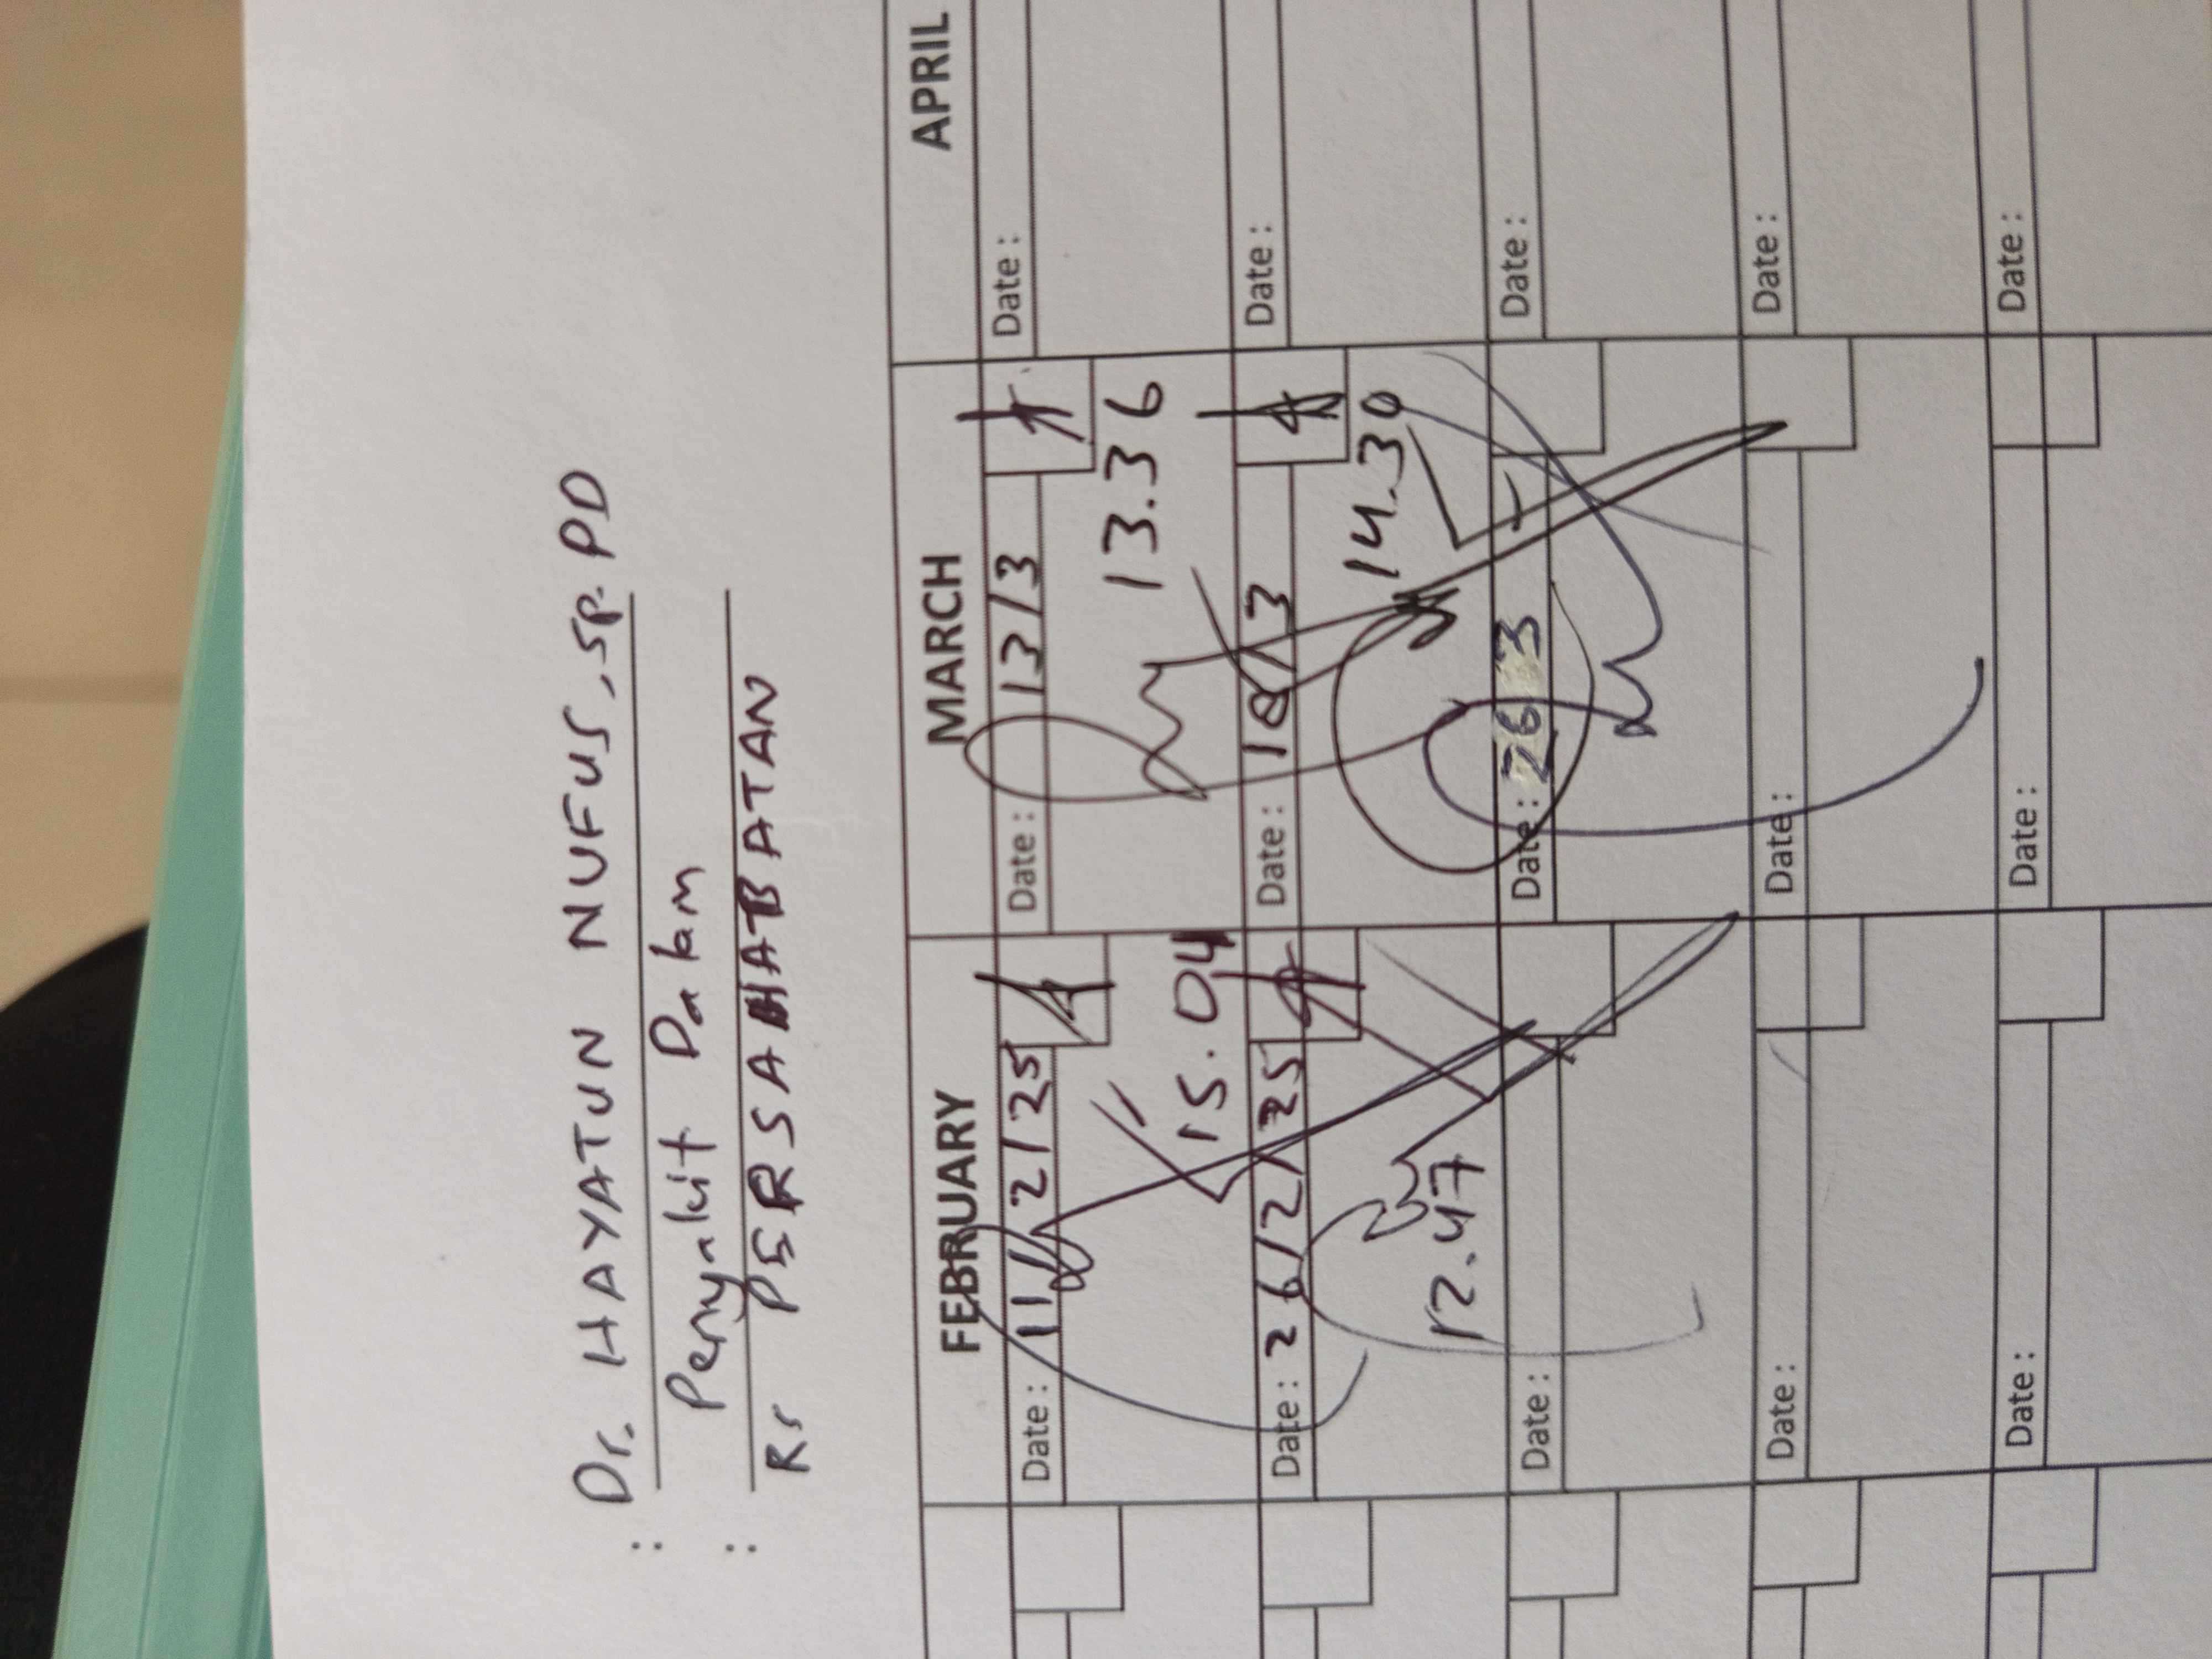 : Dr. HAYATUN NUFUS, SP. PD
: Penyakit Dalam
RS PERSAHABATAN
FEBRUARY MARCH APRIL
Date : 11/2/25 Date : 13/3 Date :
15.04 13.36
Date : 26/2/25 Date : 18/3 Date :
12.47 14.30
Date : Date : 26 3 Date :
Date : Date : Date :
Date : Date : Date :